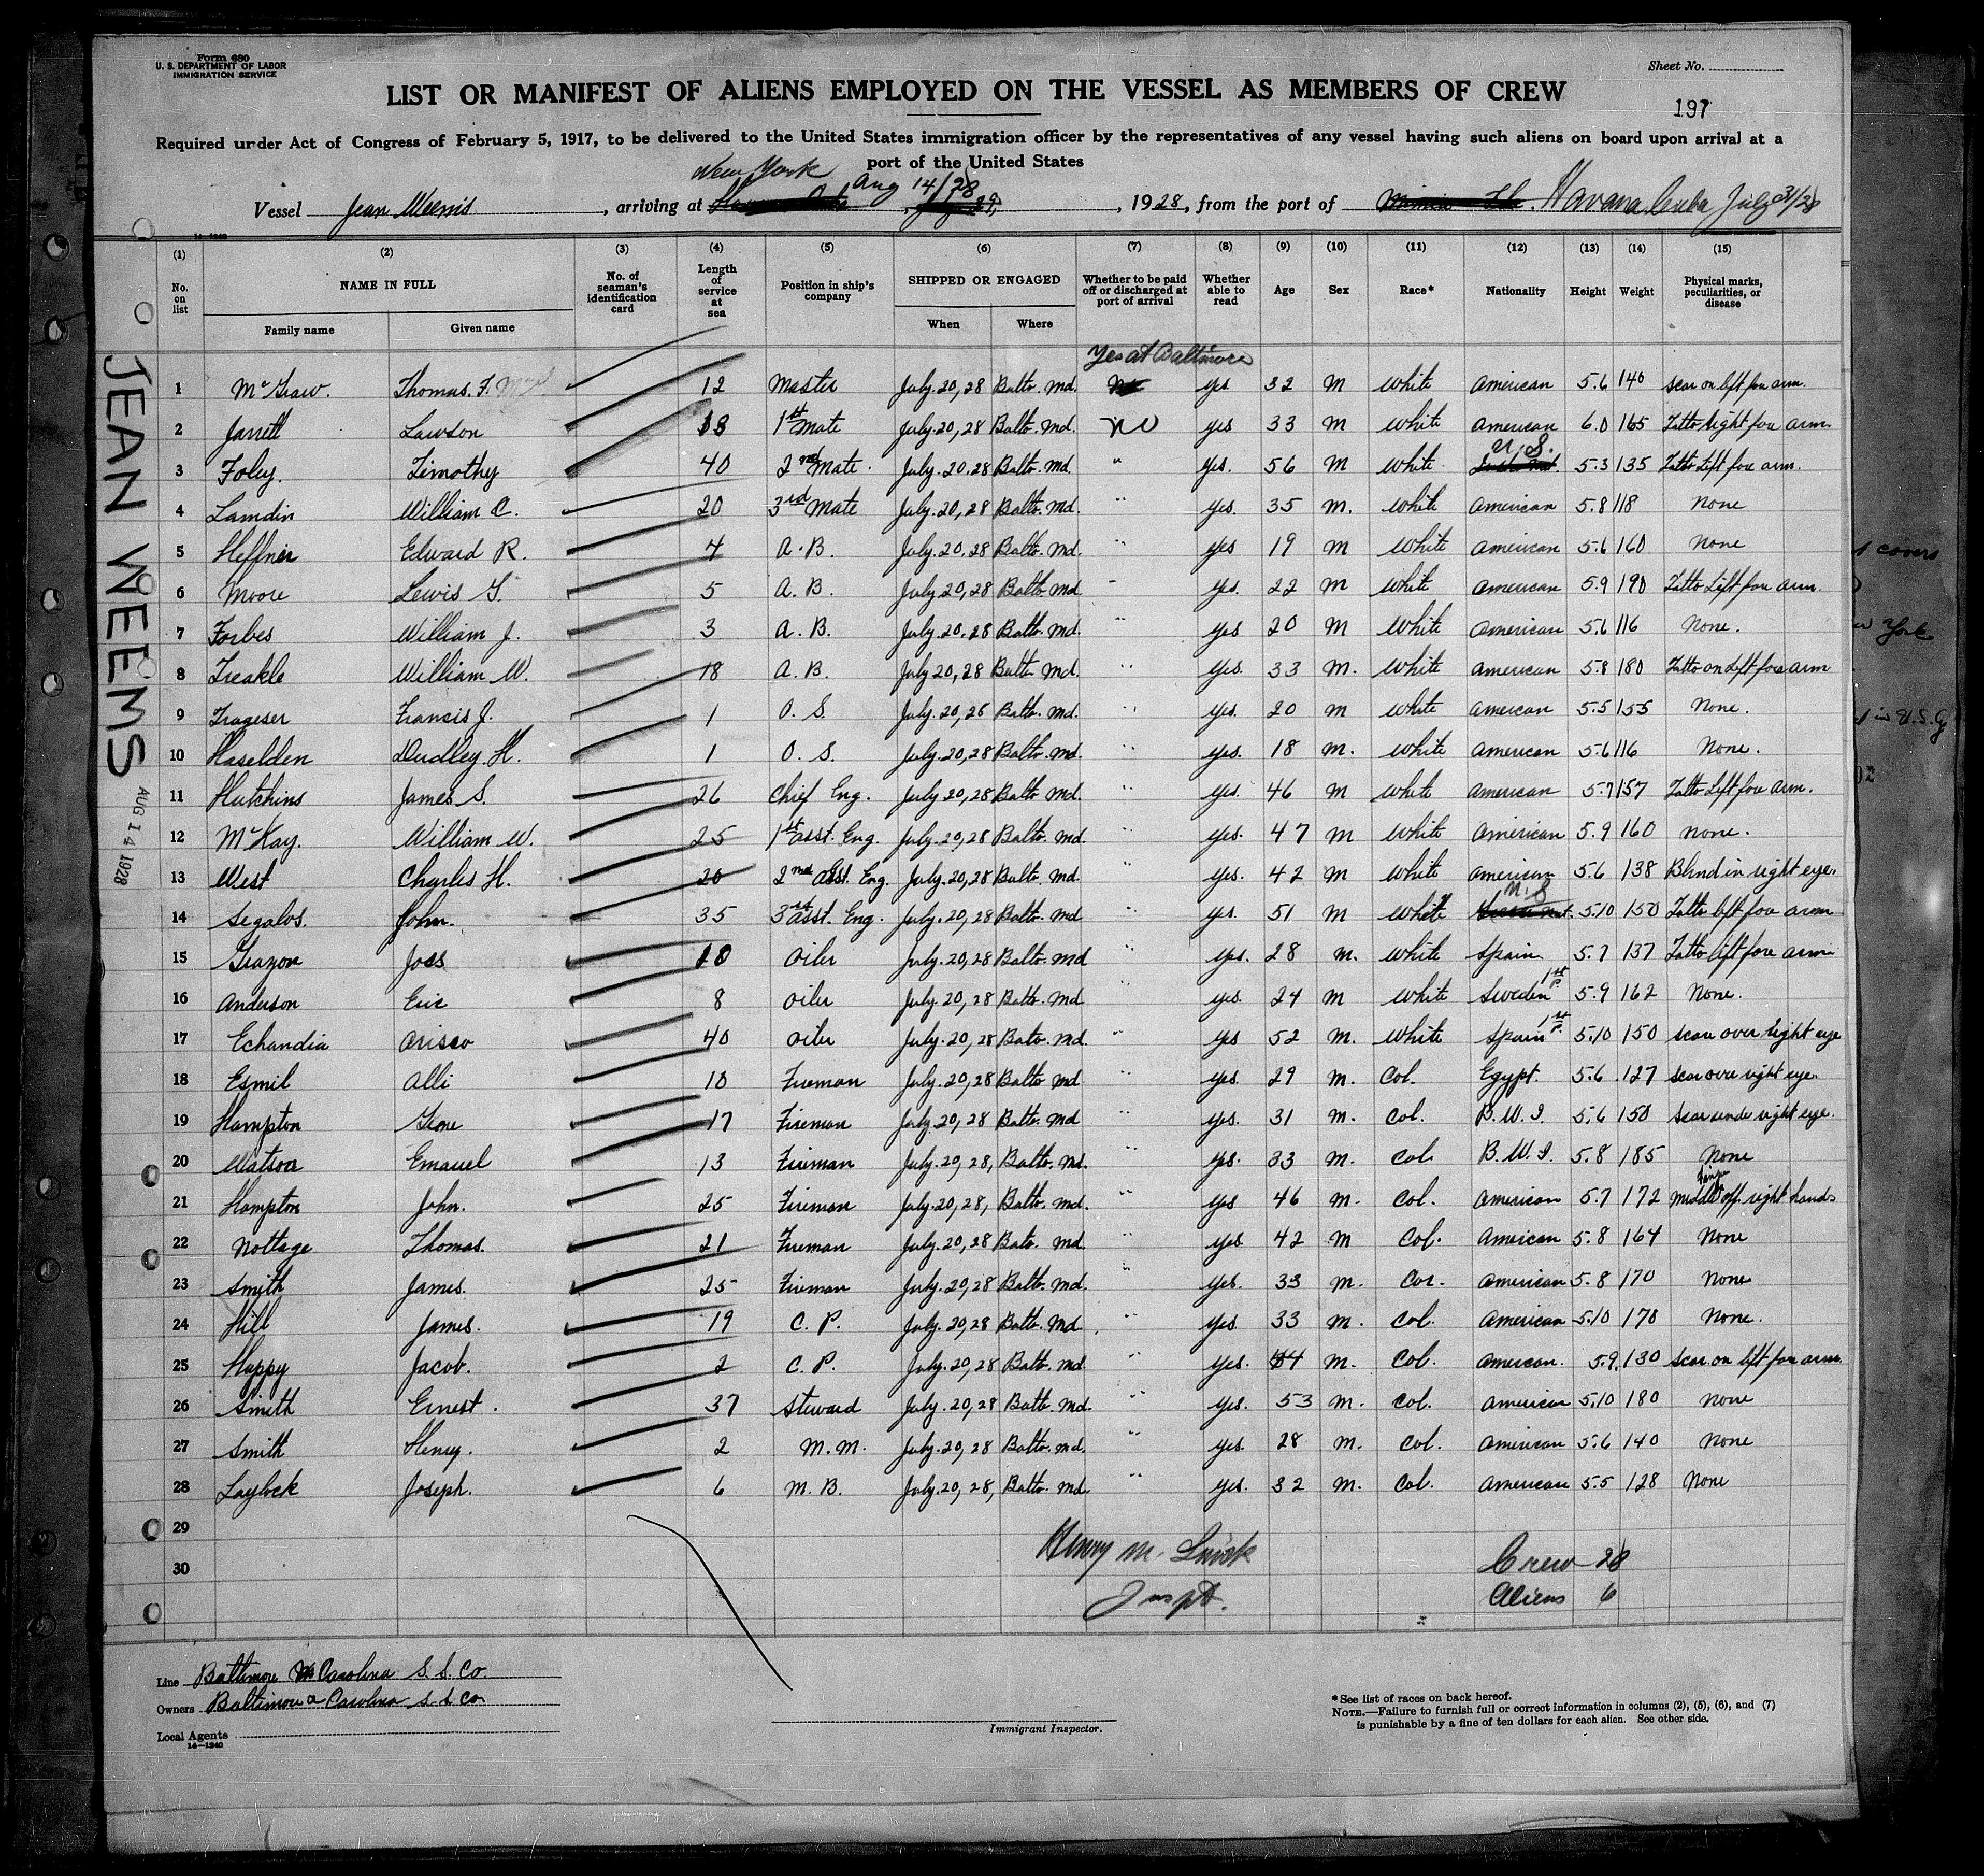 Form 680
U. S. DEPARTMENT OF LABOR
IMMIGRATION SERVICE
Sheet No.
LIST OR MANIFEST OF ALIENS EMPLOYED ON THE VESSEL AS MEMBERS OF CREW
197
Required under Act of Congress of February 5, 1917, to be delivered to the United States immigration officer by the representatives of any vessel having such aliens on board upon arrival at a
port of the United States
New York Aug 14/28
Vessel Jean Weems, arriving at , 1928, from the port of Havana Cuba July 31/28
14-1240
(1) (2) (3) (4) (5) (6) (7) (8) (9) (10) (11) (12) (13) (14) (15)
No. on list NAME IN FULL No. of seaman's identification card Length of service at sea Position in ship's company SHIPPED OR ENGAGED Whether to be paid off or discharged at port of arrival Whether able to read Age Sex Race* Nationality Height Weight Physical marks, peculiarities, or disease
Family name Given name When Where
Yes at Baltimore
1 McGraw. Thomas. F. 12 Master July.20,28 Balto. Md. yes 32 M White American 5.6 140 scar on left fore arm.
2 Jarrett Lawson 18 1st Mate July.20,28 Balto. Md. No yes 33 M White American 6.0 165 Tatto right fore arm.
3 Foley. Timothy 40 2nd Mate. July.20,28 Balto. Md. " Yes. 56 M White U.S. 5.3 135 Tatto Left fore arm.
4 Lamdin William C. 20 3rd Mate July.20,28 Balto. Md. " Yes. 35 M. White American 5.8 118 None
5 Heffner Edward R. 4 A.B. July.20,28 Balto. Md. " Yes 19 M White American 5.6 160 None
6 Moore Lewis G. 5 A.B. July.20,28 Balto. Md " yes. 22 M White American 5.9 190 Tatto Left fore arm.
7 Forbes William J. 3 A.B. July.20,28 Balto. Md. " Yes 20 M White American 5.6 116 None.
8 Treakle William W. 18 A.B. July 20,28 Balto. Md. " Yes. 33 M. White American 5.8 180 Tatto on Left fore arm
9 Trageser Francis J. 1 O.S. July.20,28 Balto. Md. " Yes. 20 M White American 5.5 155 None.
10 Haselden Dudley H. 1 O.S. July.20,28 Balto. Md. " yes. 18 M. White American 5.6 116 None.
11 Hutchins James S. 26 Chief Eng. July 20,28 Balto Md. " yes. 46 M White American 5.7 157 Tatto Left fore arm.
12 McKay. William W. 25 1st asst. Eng. July.20,28 Balto. Md " yes. 47 M White American 5.9 160 None.
13 West Charles H. 20 2nd asst. Eng. July.20,28 Balto. Md. " yes. 42 M White American 5.6 138 Blind in right eye.
14 Segalos. John. 35 3 asst. Eng. July.20,28 Balto. Md " yes. 51 M White U.S 5.10 150 Tatto left fore arm
15 Grazon Joes 10 Oiler July.20,28 Balto. Md " yes. 28 M. White Spain 5.7 137 Tatto left fore arm
16 Anderson Eric 8 Oiler July.20,28 Balto. Md " yes. 24 M White Sweden 1st P. 5.9 162 None.
17 Echandia 40 Oiler July.20,28 Bato. Md. " yes 52 M. White Spain 1st P. 5.10 150 scar over right eye
18 Esmil Alli 10 Fireman July.20,28 Balto Md " yes. 29 M. Col. Egypt. 5.6 127 scar over right eye.
19 Hampton 17 Fireman July.20,28 Balto. Md " Yes. 31 M. Col. B.W.I. 5.6 150 scar under right eye.
20 Watson Emauel 13 Fireman July.20,28, Balto. Md. " Yes. 33 M. Col B.W.I. 5.8 185 None
21 Hampton John. 25 Fireman July.20,28, Balto. Md. " Yes 46 M. Col. American 5.7 172 middle finger off right hand
22 Nottage Thomas. 21 Fireman July.20,28 Bato. Md. " yes 42 M Col. American 5.8 164 None
23 Smith James. 25 Fireman July.20,28 Balto. Md. " Yes. 33 M. Col. American 5.8 170 None
24 Hill James. 19 C.P. July.20,28 Balto. Md. " Yes. 33 M. Col. American 5.10 170 None.
25 Happy Jacob. 2 C.P. July.20,28 Balto. Md. " Yes. M. Col. American. 5.9. 130 scar on left fore arm.
26 Smith Ernest. 37 Steward July.20,28 Balto. Md. " Yes. 53 M. Col. American 5.10 180 None
27 Smith Henry. 2 M.M. July.20,28 Balto. Md. " Yes. 28 M. Col. American 5.6 140 None
28 Laylock Joseph. 6 M.B. July.20,28, Balto. Md. " Yes. 32 M. Col. American 5.5 128 None
29
30
Henry M.
Inspt.
Crew 28
Aliens 6
Line Baltimore Carolina S.S. Co.
Owners Baltimore & Carolina S.S. Co
Local Agents
14-1240
Immigrant Inspector.
*See list of races on back hereof.
NOTE.—Failure to furnish full or correct information in columns (2), (5), (6), and (7)
is punishable by a fine of ten dollars for each alien. See other side.
JEAN WEEMS
AUG 14 1928
covers
York
in U.S.